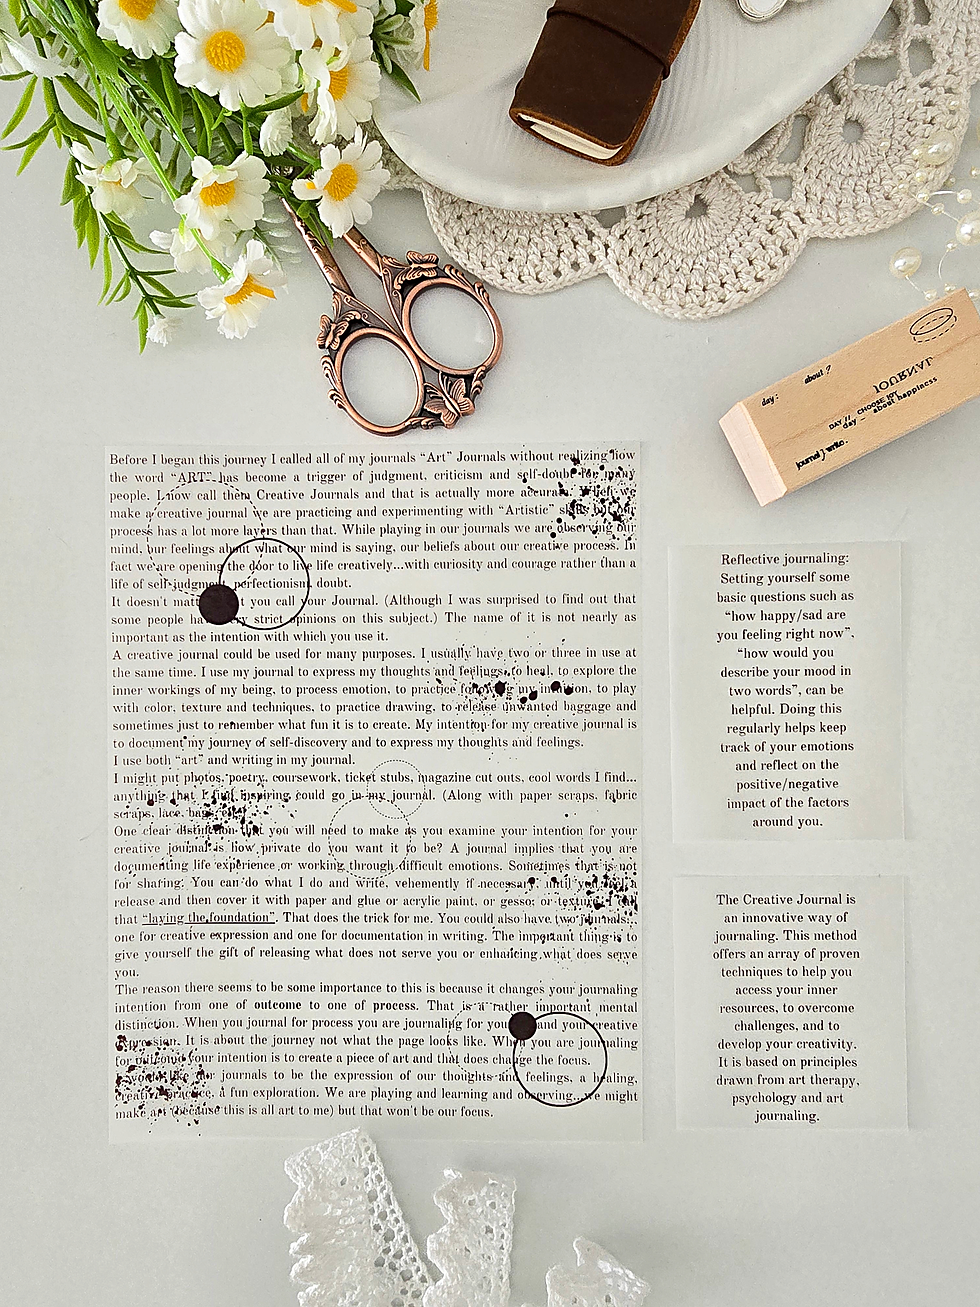 Before I began this journey I called all of my journals “Art” Journals without realizing how
the word “ART” has become a trigger of judgment, criticism and self-doubt for many
people. I now call them Creative Journals and that is actually more accurate. When we
make a creative journal we are practicing and experimenting with “Artistic” skills but our
process has a lot more layers than that. While playing in our journals we are observing our
mind, our feelings about what our mind is saying, our beliefs about our creative process. In
fact we are opening the door to live life creatively...with curiosity and courage rather than a
life of self-judgment, perfectionism, doubt.
It doesn't matter what you call your Journal. (Although I was surprised to find out that
some people have very strict opinions on this subject.) The name of it is not nearly as
important as the intention with which you use it.
A creative journal could be used for many purposes. I usually have two or three in use at
the same time. I use my journal to express my thoughts and feelings, to heal, to explore the
inner workings of my being, to process emotion, to practice following my intuition, to play
with color, texture and techniques, to practice drawing, to release unwanted baggage and
sometimes just to remember what fun it is to create. My intention for my creative journal is
to document my journey of self-discovery and to express my thoughts and feelings.
I use both “art” and writing in my journal.
I might put photos, poetry, coursework, ticket stubs, magazine cut outs, cool words I find...
anything that I find inspiring could go in my journal. (Along with paper scraps, fabric
scraps, lace,
One clear distinction that you will need to make as you examine your intention for your
creative journal is how private do you want it to be? A journal implies that you are
documenting life experience or working through difficult emotions. Sometimes that is not
for sharing. You can do what I do and write, vehemently if necessary, until you feel a
release and then cover it with paper and glue or acrylic paint, or gesso, or texture. I call
that “laying the foundation”. That does the trick for me. You could also have two journals...
one for creative expression and one for documentation in writing. The important thing is to
give yourself the gift of releasing what does not serve you or enhancing what does serve
you.
The reason there seems to be some importance to this is because it changes your journaling
intention from one of outcome to one of process. That is a rather important mental
distinction. When you journal for process you are journaling for you and your creative
expression. It is about the journey not what the page looks like. When you are journaling
for outcome your intention is to create a piece of art and that does change the focus.
I would like our journals to be the expression of our thoughts and feelings, a healing,
creative practice, a fun exploration. We are playing and learning and observing...we might
make art (because this is all art to me) but that won't be our focus.
day: about ?
JOURNAL
DAY // CHOOSE JOY
day - about happiness
journal } write.
Reflective journaling:
Setting yourself some
basic questions such as
“how happy/sad are
you feeling right now”,
“how would you
describe your mood in
two words”, can be
helpful. Doing this
regularly helps keep
track of your emotions
and reflect on the
positive/negative
impact of the factors
around you.
The Creative Journal is
an innovative way of
journaling. This method
offers an array of proven
techniques to help you
access your inner
resources, to overcome
challenges, and to
develop your creativity.
It is based on principles
drawn from art therapy,
psychology and art
journaling.